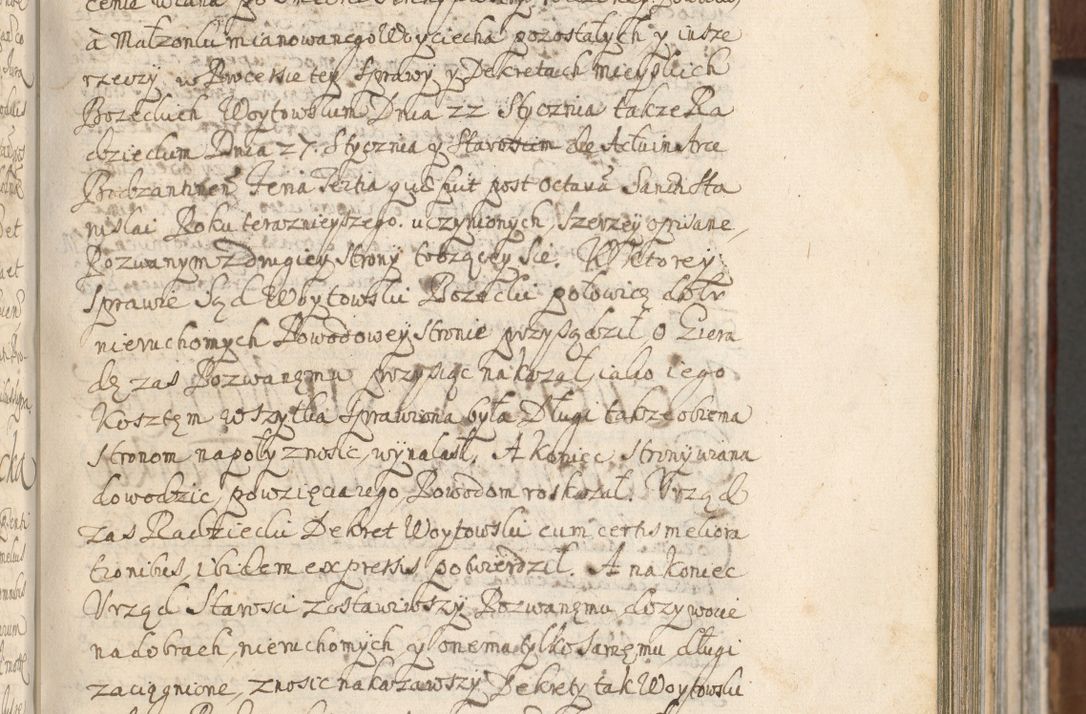 à Małzonku mianowanego Woyciecha pozostałych y insze
rzeczy, w Processie tey Sprawy y Dekretach mieyskich
Bozeckich Woytowskum Dnia 22 Stycznia takze Ra
dzieckum Dnia 27. Stycznia y Staroscim de Actu in Arce
Bodzantinen Feria Tertia quæ fuit post Octavā Sancti Sta
nislai Roku terazniejszego. uczynionych, szerzey opisane,
Pozwanym z drugiey strony toczącey się. W Ktorey
sprawie Sąd Woytowski Bozecki połowicę dobr
nieruchomych Powodowey stronie przysądził o Giera
dę zas Pozwanęmu przysiąc nakazał, iako iego
Kosztęm wszytka sprawiona była Długi takze obiema
stronom napoły znosic, wynalasł, A koniec strony wiana
dowodzic, powzięcia iego, Powodom roskazał. Vrząd
zas Radziecki Dekret Woytowski cum certis meliora
tionibus, ibidem expressis potwierdził. A nakoniec
Vrząd Starosci zostawiwszy Pozwanęmu dozywocie
na dobrach, nieruchomych y onemu tylko samęmu, długi
zaciągnione, znosic nakazawszy, Dekrety tak Woytowski